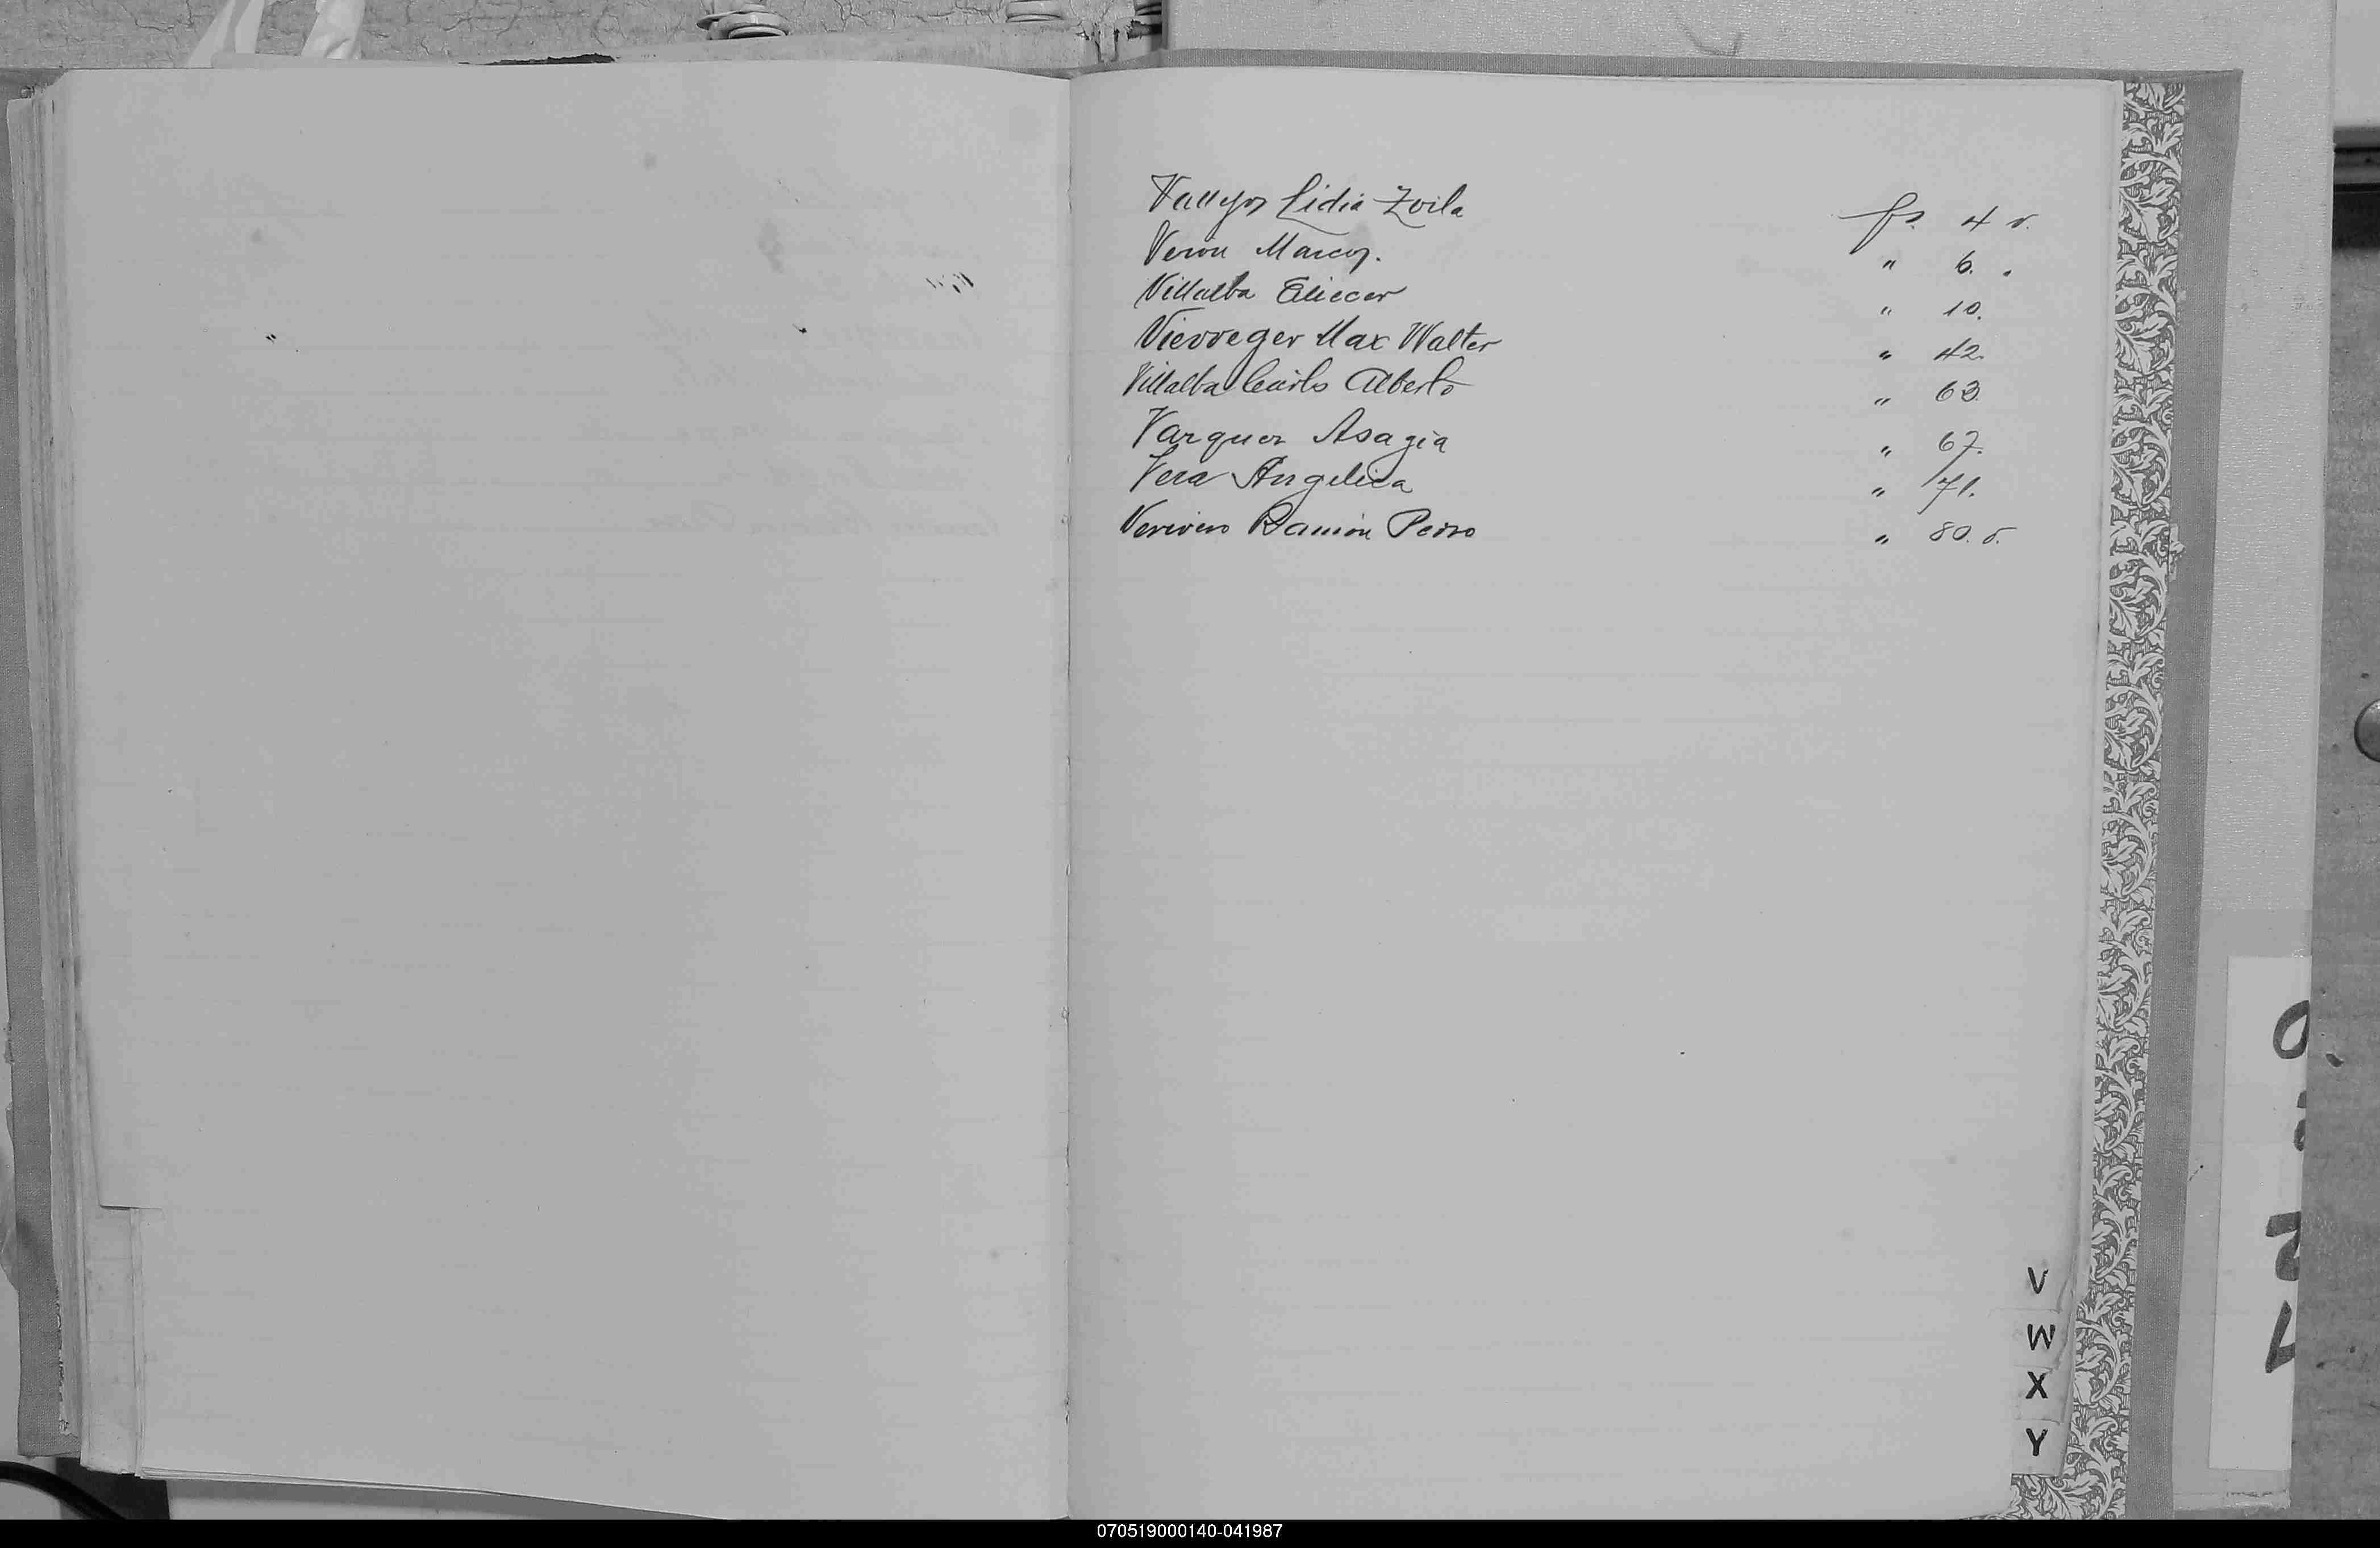 Vallejos Lidia Zoila fs. 4 v.
Veron Marcos. " 6. "
Villalba Eliecer " 10.
Vierveger Max Walter " 42.
Villalba Carlos Alberto " 63.
Varquez Asagia " 67.
Vera Angelica " 71.
Ramón Pedro " 80. v.
V
W
X
Y
070519000140-041987